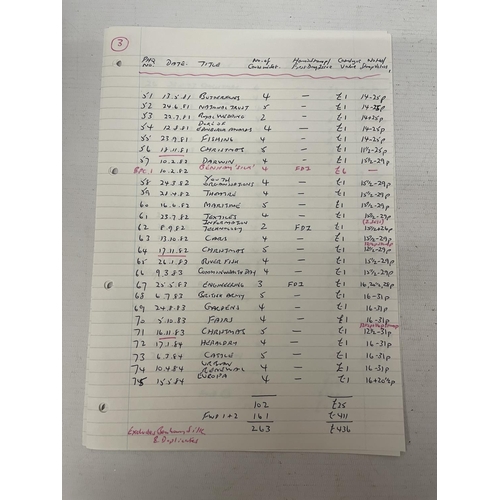 3
PHQ NO. DATE. TITLE No. of Cards in Set. Handstamp/ First Day Issue Catalogue Value Notes/ Stamp Values.
51 13.5.81 BUTTERFLIES 4 — £1 14-25p
52 24.6.81 NATIONAL TRUST 5 — £1 14-25p
53 22.7.81 ROYAL WEDDING 2 — £1 14+25p
54 12.8.81 DUKE OF EDINBURGH AWARDS 4 — £1 14-25p
55 23.9.81 FISHING 4 — £1 14-25p
56 18.11.81 CHRISTMAS 5 — £1 11½-25p
57 10.2.82 DARWIN 4 — £1 15½-29p
10.2.82 BENHAM 'SILK' 4 FDI £6 —
58 24.3.82 YOUTH ORGANISATIONS 4 — £1 15½-29p
59 28.4.82 THEATRE 4 — £1 15½-29p
60 16.6.82 MARITIME 5 — £1 15½-29p
61 23.7.82 TEXTILES 4 — £1 15½-29p
62 8.9.82 INFORMATION TECHNOLOGY 2 FDI £1 15½+26p
63 13.10.82 CARS 4 — £1 15½-29p
64 17.11.82 CHRISTMAS 5 — £1 12½-29p
65 26.1.83 RIVER FISH 4 — £1 15½-29p
66 9.3.83 COMMONWEALTH DAY 4 — £1 15½-29p
67 25.5.83 ENGINEERING 3 FDI £1 16, 20½, 28p
68 6.7.83 BRITISH ARMY 5 — £1 16-31p
69 24.8.83 GARDENS 4 — £1 16-31p
70 5.10.83 FAIRS 4 — £1 16-31p
71 16.11.83 CHRISTMAS 5 — £1 12½-31p
72 17.1.84 HERALDRY 4 — £1 16-31p
73 6.3.84 CATTLE 5 — £1 16-31p
74 10.4.84 URBAN RENEWAL 4 — £1 16-31p
75 15.5.84 EUROPA 4 — £1 16+20½p
102 £25
Fwd 1+2 161 £411
263 £436
Excludes Benham Silk
& Duplicates